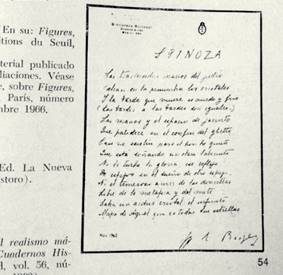 En su: Figures,
tions du Seuil,
terial publicado
liaciones. Véase
, sobre Figures,
París, número
mbre 1966.
Ed. La Nueva
storo).
l realismo má-
Cuadernos His-
d, vol. 56, nú-
SPINOZA
Las traslúcidas manos del judío
labran en la penumbra los cristales
y la tarde que muere es miedo y frío
(las tardes a las tardes son iguales).
Las manos y el espacio de jacinto
que palidece en el confín del ghetto
casi no existen para el hombre quieto
que está soñando un claro laberinto.
No lo turba la ese reflejo
de sueños en el sueño de otro espejo,
ni el temeroso amor de las doncellas.
Libre de la metáfora y del mito
labra un arduo cristal: el infinito
mapa de Aquel que es todas sus estrellas.
54